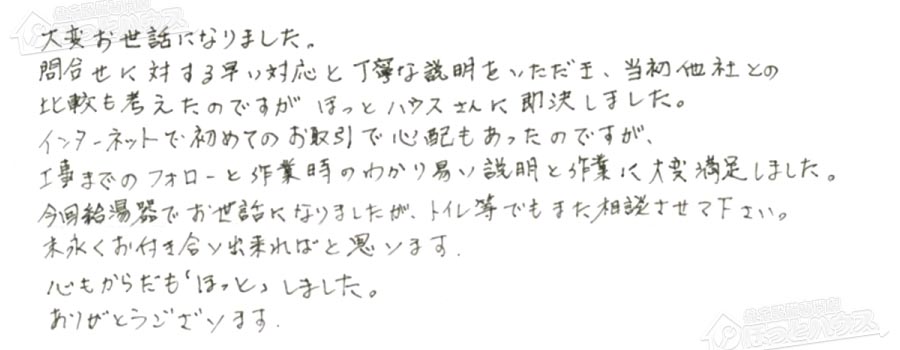 大変お世話になりました。
問合せに対する早い対応と丁寧な説明をいただき、当初他社との
比較も考えたのですがほっとハウスさんに即決しました。
インターネットで初めてのお取引で心配もあったのですが、
工事までのフォローと作業時のわかり易い説明と作業に大変満足しました。
今回給湯器でお世話になりましたが、トイレ等でもまた相談させて下さい。
末永くお付き合い出来ればと思います.
心もからだも「ほっと」しました。
ありがとうございます.
ほっとハウス